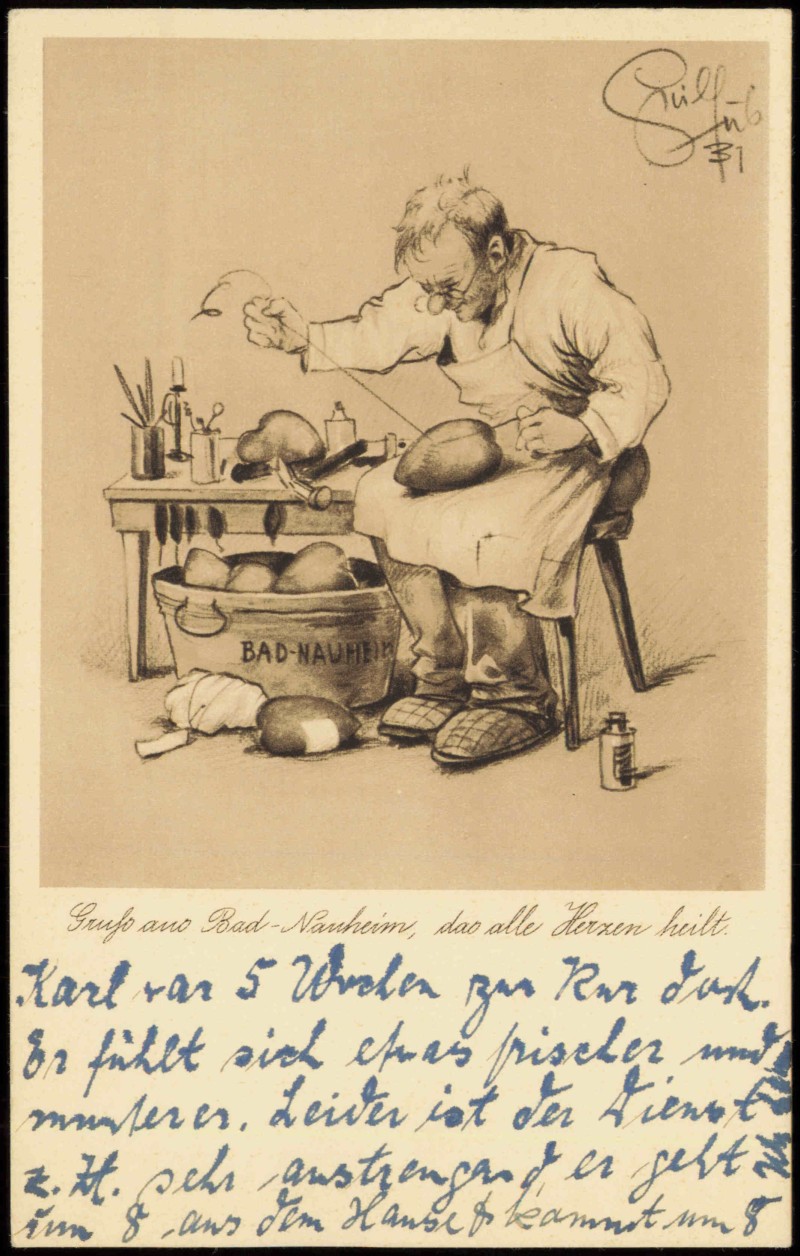 31
BAD-NAUHEIM
Gruß aus Bad-Nauheim, das alle Herzen heilt.
Karl war 5 Wochen zur Kur dort.
Er fühlt sich etwas frischer und
munterer. Leider ist der Dienst
z. Zt. sehr anstrengend, er geht
um 8 aus dem Hause & kommt um 8